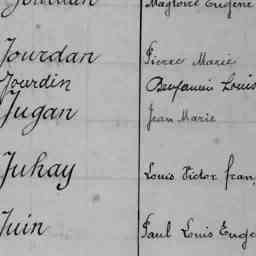 Jourdan Magloire Eugène
Jourdan Pierre Marie
Jourdin Benjamin Louis
Jugan Jean Marie
Juhay Louis Victor fran
Juin Paul Louis Euge